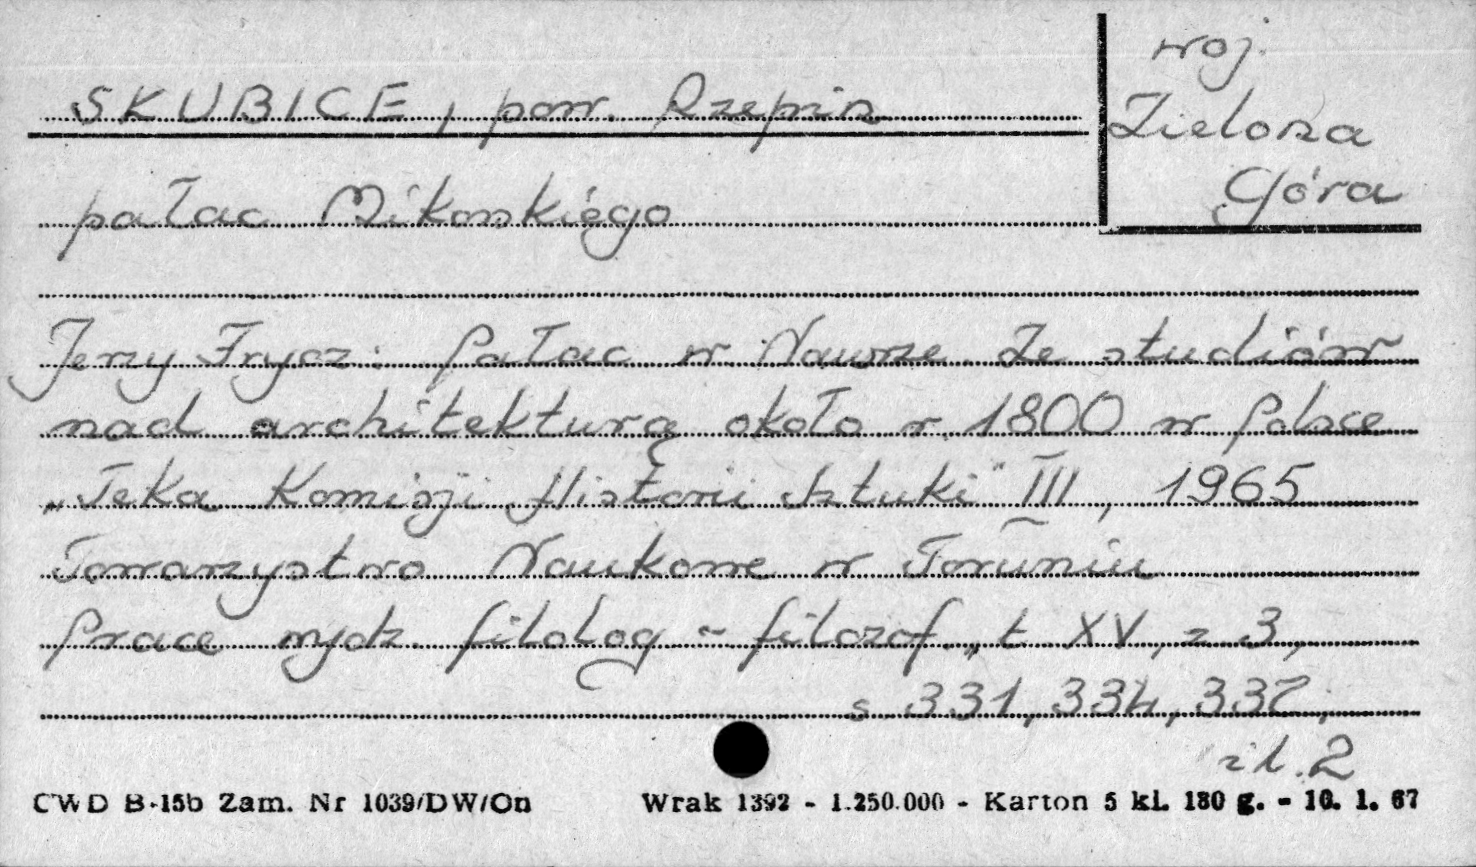 woj.
SKUBICE, pow. Rzepin
Zielona
Góra
pałac Mikorskiego
Jerzy Frycz: Pałac w Nawrze. Ze studiów
nad architekturą około r. 1800 w Polsce
„Teka Komisji Historii Sztuki" III, 1965
Towarzystwo Naukowe w Toruniu
Prace wydz. filolog - filozof., t XV, z 3,
s 331, 334, 337,
il. 2
CWD B-15b Zam. Nr 1039/DW/On Wrak 1392 - 1.250.000 - Karton 5 kl. 180 g. - 10. 1. 67